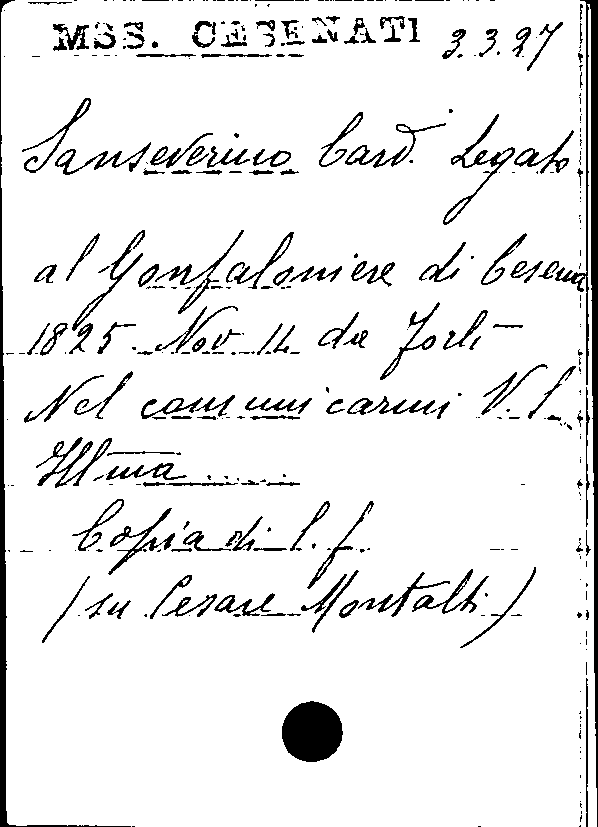 MSS. CESENATI 3.3.27
Sanseverino Card. Legato
al Gonfaloniere di Cesena
1825 Nov 14 da Forlì
Nel comunicarmi V. S.
Ill̅ma ......
Copia di l. f.
(su Cesare Montalti)